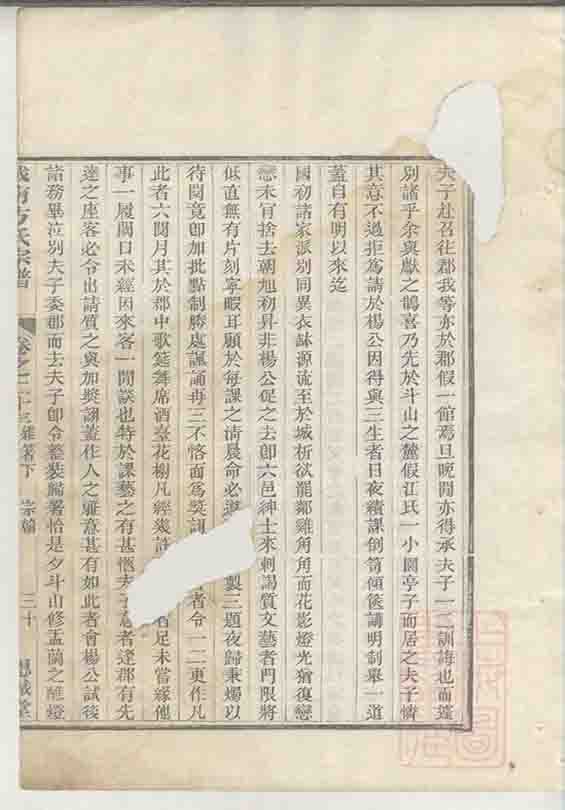 夫子赴召往郡我等亦於郡假一館焉旦晚間亦得承夫子一二訓誨也而遂
別諸乎余與獻之鵲喜乃先於斗山之麓假江氏一小園亭子而居之夫子憐
其意不過拒為請於楊公因得與三生者日夜續課倒笥傾篋講明制舉一道
蓋自有明以來迄
國初諸家派別同異衣缽源流至於城柝欲罷鄰雞角角而花影燈光猶復戀
戀未肯捨去朝旭初升非楊公促之去卽六邑紳士來刺謁質文藝者門限將
低直無有片刻寧暇耳顧於每課之清晨命必 製三題夜歸秉燭以
待閱竟卽加批點制勝處諷誦再三不悋面為獎 者令一二更作凡
此者六閱月其於郡中歌筵舞席酒臺花榭凡經幾 者足未嘗緣他
事一履閾日未經因來客一閒談也特於課藝之有甚愜夫子 者逢郡有先
達之座客必令出請質之與加獎詡蓋作人之雅意甚有如此者會楊公試後
諸務畢泣別夫子委郡而去夫子卽令整裝歸署恰是夕斗山修盂蘭之醮燈
城南方氏宗譜 卷之二十三雜著下 宗翰 三十 思誠堂